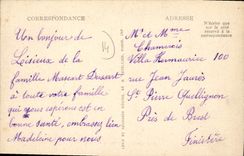 CORRESPONDANCE
Un bonjour de
Lisieux de la
famille Mascart Dessart
à toute votre famille
qui nous espérons est en
bonne santé, embrassez bien
Madeleine pour nous
14
ADRESSE
Mr et Mme
Chaminois
Villa Hermanrice 100
rue Jean Jaurès
St Pierre Quilbignon
Près de Brest
Finistère